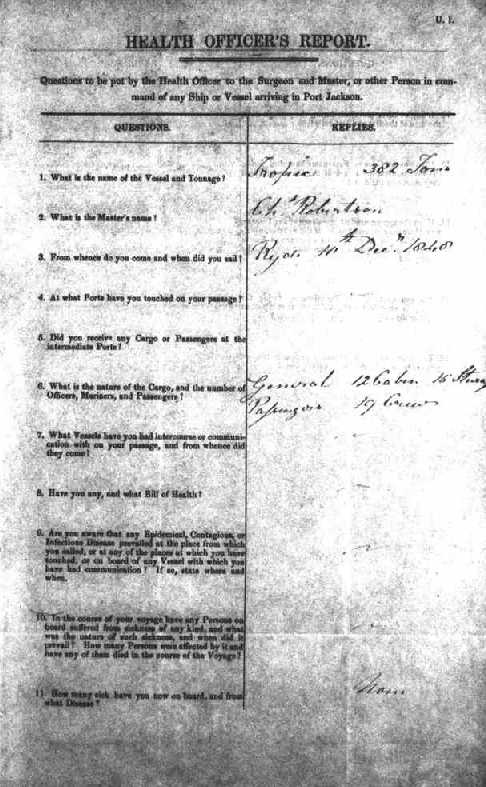 U. 1.
HEALTH OFFICER'S REPORT.
Questions to be put by the Health Officer to the Surgeon and Master, or other Person in com-
mand of any Ship or Vessel arriving in Port Jackson.
QUESTIONS. REPLIES.
1. What is the name of the Vessel and Tonnage? 382 Tons
2. What is the Master's name? Chs Robertson
3. From whence do you come and when did you sail? Decr 1848
4. At what Ports have you touched on your passage?
5. Did you receive any Cargo or Passengers at the
intermediate Ports?
6. What is the nature of the Cargo, and the number of General 12 Cabin
Officers, Mariners, and Passengers? Passengers 19 Crew
7. What Vessels have you had intercourse or communi-
cation with on your passage, and from whence did
they come?
8. Have you any, and what Bill of Health?
9. Are you aware that any Epidemical, Contagious, or
Infectious Disease prevailed at the place from which
you sailed, or at any of the places at which you have
touched, or on board of any Vessel with which you
have had communication? If so, state where and
when.
10. In the course of your voyage have any Persons on
board suffered from sickness of any kind, and what
was the nature of such sickness, and when did it
prevail? How many Persons were affected by it and
have any of them died in the course of the Voyage?
11. How many sick have you now on board, and from None
what Disease?